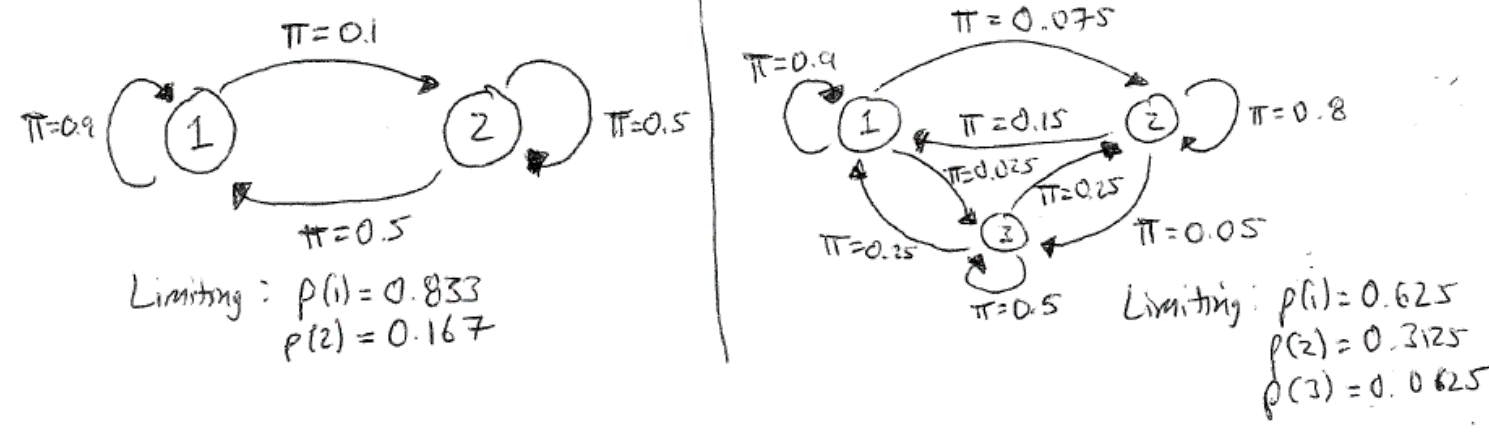 π = 0.1
π=0.9
1
2
π=0.5
π = 0.5
Limiting : p(1) = 0.833
p(2) = 0.167
π = 0.075
π=0.9
1
π = 0.15
2
π = 0.8
π=0.025
π=0.25
3
π=0.25
π = 0.05
π=0.5
Limiting : p(1) = 0.625
p(2) = 0.3125
p(3) = 0.0625